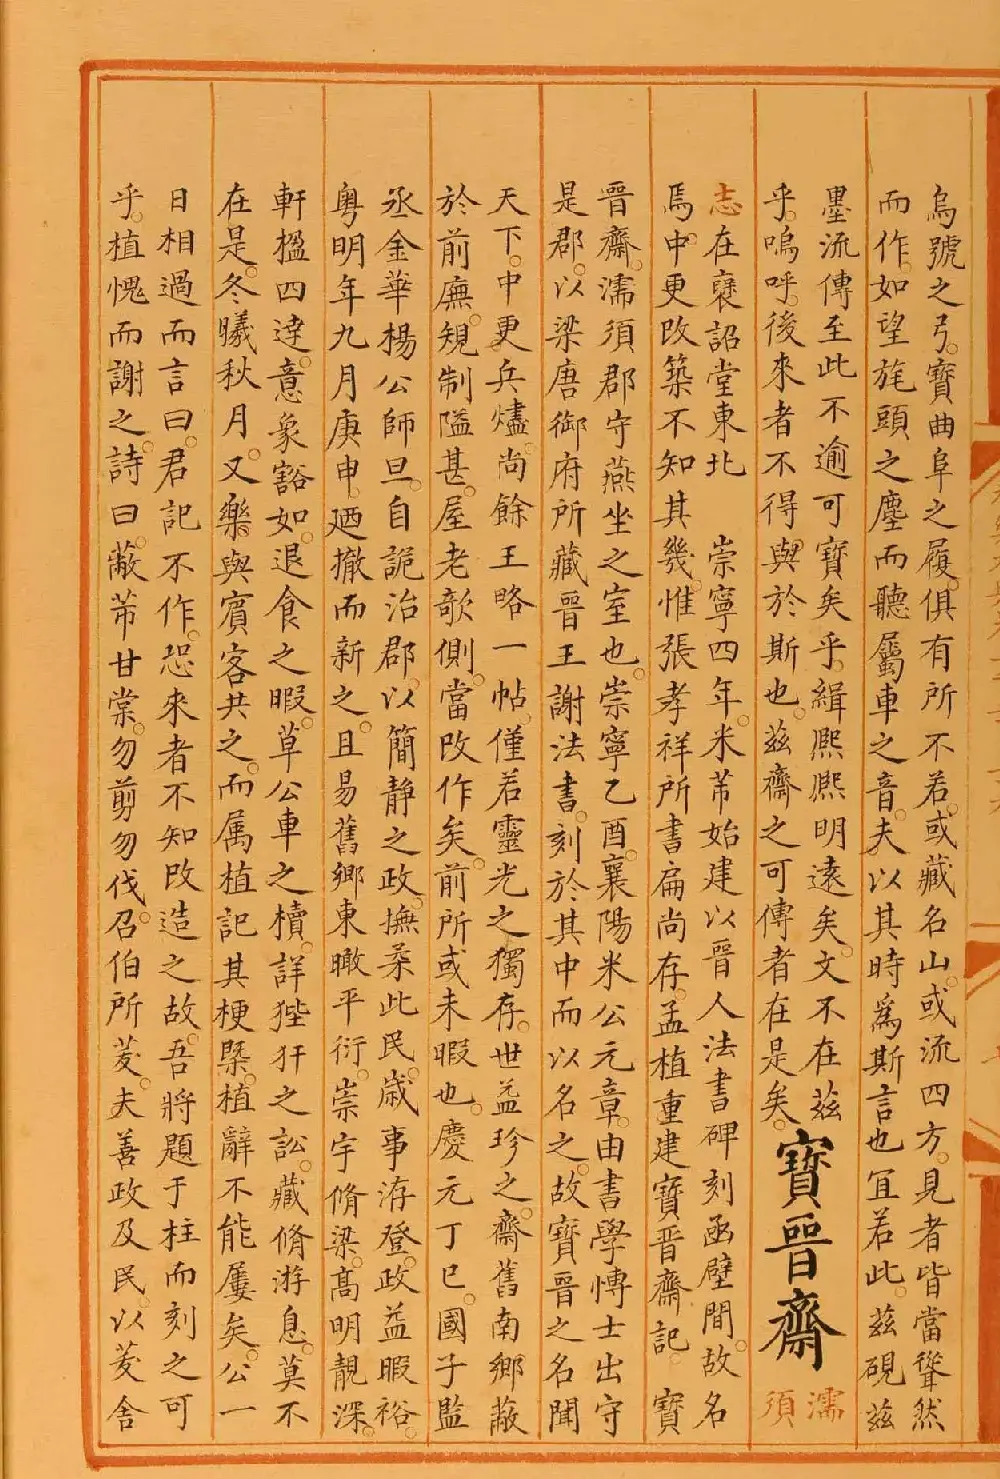 烏號之弓寶曲阜之履俱有所不若或藏名山或流四方見者皆當聳然
而作如望旄頭之塵而聽屬車之音夫以其時為斯言也宜若此茲硯茲
墨流傳至此不逾可寶矣乎緝熈熈明遠矣文不在茲
乎嗚呼後來者不得與於斯也茲齋之可傳者在是矣
寶晉齋
濡
須
志在褒詔堂東北 崇寧四年米芾始建以晉人法書碑刻函壁間故名
焉中更改築不知其幾惟張孝祥所書扁尚存孟植重建寶晉齋記 寶
晉齋濡須郡守燕坐之室也崇寧乙酉襄陽米公元章由書學愽士出守
是郡以梁唐御府所藏晉王謝法書刻於其中而以名之故寶晉之名聞
天下中更兵燼尚餘王略一帖僅若靈光之獨存世益珍之齋舊南鄉蔽
於前廡䂓制隘甚屋老欹側當改作矣前所或未暇也慶元丁巳國子監
丞金華楊公師旦自詭治郡以簡靜之政撫柔此民歲事洊登政益暇裕
粤明年九月庚申廼撤而新之且易舊鄉東瞰平衍崇宇脩梁高明靚深
軒楹四達意象豁如退食之暇草公車之牘詳狴犴之訟藏脩游息莫不
在是冬曦秋月又樂與賓客共之而属植記其梗槩植辭不能屢矣公一
日相過而言曰君記不作恐來者不知改造之故吾將題于柱而刻之可
乎植愧而謝之詩曰蔽芾甘棠勿剪勿伐召伯所茇夫善政及民以茇舍